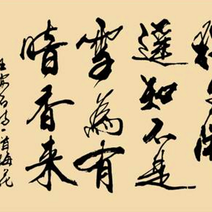 遥知不是
雪為有
暗香来
王安石诗一首梅花